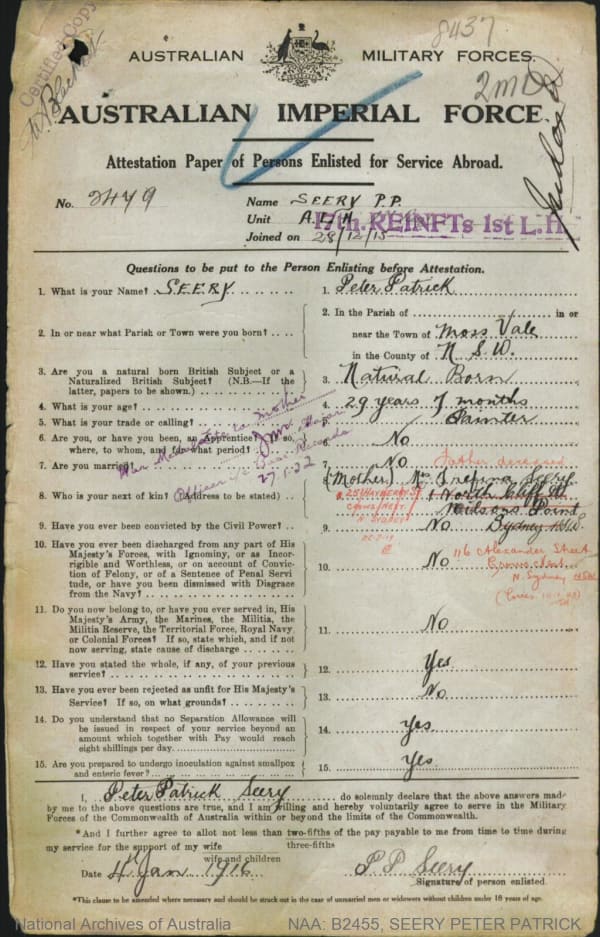 8437
Certified Copy
AUSTRALIAN MILITARY FORCES.
2nd D
AUSTRALIAN IMPERIAL FORCE.
Attestation Paper of Persons Enlisted for Service Abroad.
No. 2479
Name SEERY P.P.
Unit A.L.H
17th. REINFTs 1st L.H.
Joined on 28/12/15
Questions to be put to the Person Enlisting before Attestation.
1. What is your Name? SEERY
1. Peter Patrick
2. In or near what Parish or Town were you born?
2. In the Parish of in or
near the Town of Moss Vale
in the County of N.S.W.
3. Are you a natural born British Subject or a
Naturalized British Subject? (N.B.—If the
latter, papers to be shown.)
3. Natural Born
4. What is your age?
4. 29 years 7 months
5. What is your trade or calling?
5. Painter
6. Are you, or have you been, an Apprentice? If so,
where, to whom, and for what period?
6. No
7. Are you married?
7. No
Father deceased
War Med. to mother
Major
Officer i/c Base Records
27.1.22
8. Who is your next of kin? (Address to be stated)
8. (Mother) Mrs Seery
1 North Cliff St
Milsons Point
Sydney N.S.W.
N. SYDNEY
116 Alexander Street
Crows Nest
N. Sydney NSW
9. Have you ever been convicted by the Civil Power?
9. No
10. Have you ever been discharged from any part of His
Majesty's Forces, with Ignominy, or as Incor-
rigible and Worthless, or on account of Convic-
tion of Felony, or of a Sentence of Penal Servi-
tude, or have you been Dismissed with Disgrace
from the Navy?
10. No
11. Do you now belong to, or have you ever served in, His
Majesty's Army, the Marines, the Militia, the
Militia Reserve, the Territorial Force, Royal Navy
or Colonial Forces? If so, state which, and if not
now serving, state cause of discharge
11. No
12. Have you stated the whole, if any, of your previous
service?
12. Yes
13. Have you ever been rejected as unfit for His Majesty's
Service? If so, on what grounds?
13. No
14. Do you understand that no Separation Allowance will
be issued in respect of your service beyond an
amount which together with Pay would reach
eight shillings per day.
14. yes
15. Are you prepared to undergo inoculation against smallpox
and enteric fever?
15. Yes
I, Peter Patrick Seery do solemnly declare that the above answers made
by me to the above questions are true, and I am willing and hereby voluntarily agree to serve in the Military
Forces of the Commonwealth of Australia within or beyond the limits of the Commonwealth.
*And I further agree to allot not less than two-fifths of the pay payable to me from time to time during
three-fifths
my service for the support of my wife
wife and children
Date 4th Jan 1916
P P Seery
Signature of person enlisted.
*This clause to be amended where necessary and should be struck out in the case of unmarried men or widowers without children under 18 years of age.
National Archives of Australia
NAA: B2455, SEERY PETER PATRICK